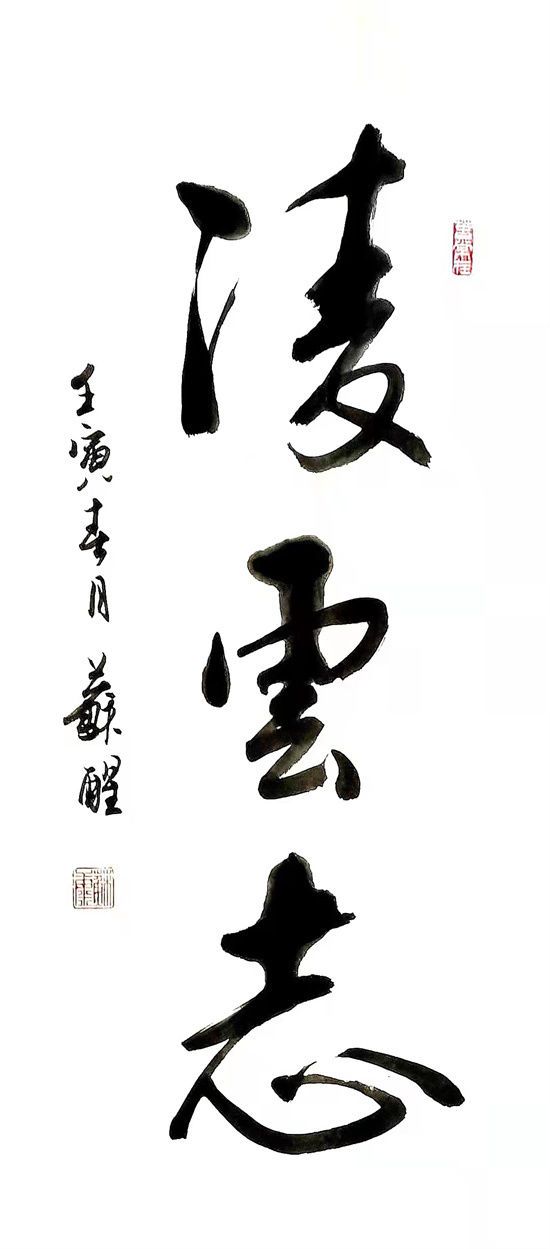 凌雲志
壬寅春月 蘇醒